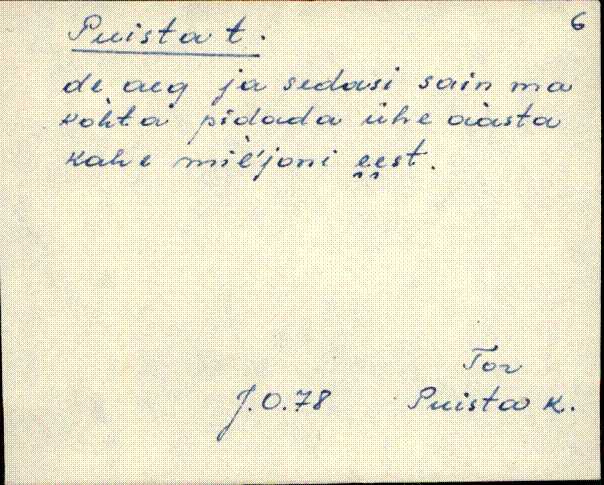 6
Puista t.
de aeg ja sedasi sain ma
kòhta pidada ühe aasta
kahe miĺ'joni e̬e̬st.
Tor
J.O.78 Puista k.